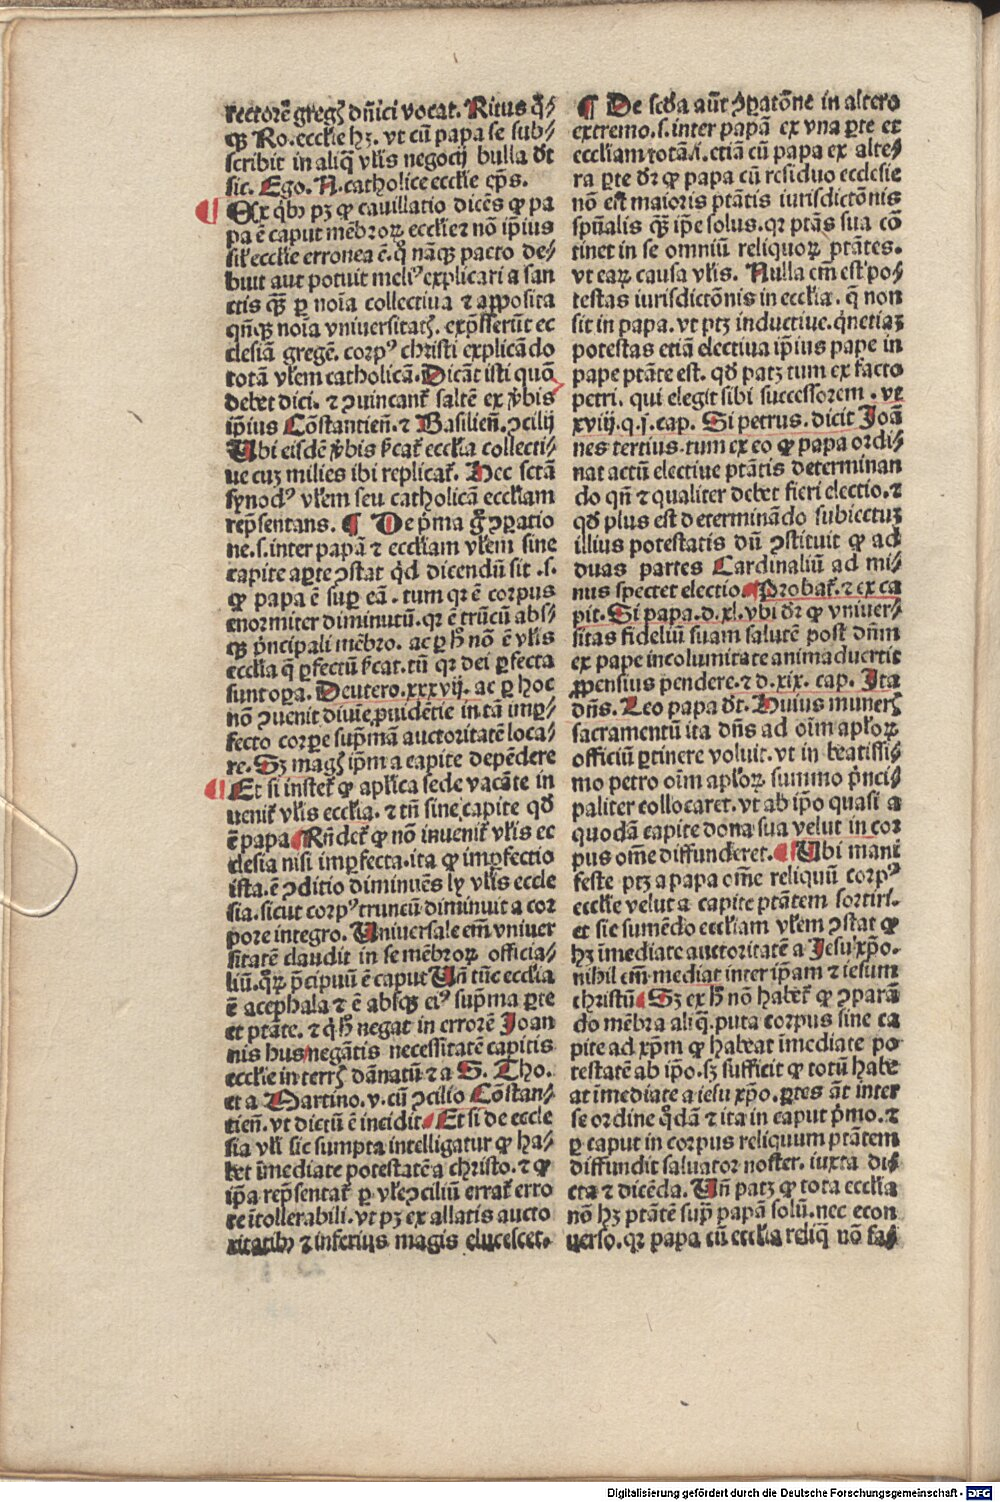 rectorē gregꝭ dn̄ici vocat. Ritus q̄-
qꝫ Ro. ecclie hꝫ. vt cū papa se sub-
scribit in aliq̄ vlis negocij bulla dr̄
sic. Ego. N. catholice ecclie ep̄s.
Ex q̇bꝰ pꝫ ꝙ cauillatio dicēs ꝙ pa
pa ē caput mēbroꝝ ecclie ⁊ nō ip̄ius
sil ecclie erronea ē. qͦ nāqꝫ pacto de-
buit aut potuit meliꝰ explicari a san
ctis qꝫ̄ ꝑ noīa collectiua ⁊ apposita
qn̄qꝫ noīa vniuersitatꝭ. exp̄sserūt ec
clesiā gregē. corpꝰ christi explicādo
totā vlem catholicā. Dicāt isti quō
debet dici. ⁊ ꝯuincant᷑ saltē ex v̄bis
ip̄ius Cōstantien̄. ⁊ Basilien̄. ꝯcilij
Ubi eisdē v̄bis v̄cat᷑ ecclia collecti-
ue cuꝫ milies ibi replicat᷑. Hec sctā
synodꝰ vlem seu catholicā eccliam
rep̄sentans. ¶ De p̄ma gͦ ꝯꝑatio
ne. s. inter papā ⁊ eccliam vlem sine
capite aꝑte ꝯstat qͥd dicendū sit .s.
ꝙ papa ē suꝑ eā. tum qꝛ ē corpus
enormiter diminutū. qꝛ ē trūcū abs-
qꝫ p̄ncipali mēbro. ac ꝑ ħ nō ē vlis
ecclia q̄ ꝑfectū v̄cat. tū qꝛ dei ꝑfecta
sunt oꝑa. Deutero. xxxvij. ac ꝑ hoc
nō ꝯuenit diuīe ꝓuidētie in tā imꝑ-
fecto corꝑe sup̄mā auctoritatē loca-
re. Sꝫ magꝭ ip̄m a capite depēdere
Et si instet᷑ ꝙ aplica sede vacāte in
uenit᷑ vlis ecclia. ⁊ tn̄ sine capite qd̄
ē papa Rn̄det᷑ ꝙ nō inuenit᷑ vlis ec
clesia nisi imꝑfecta. ita ꝙ imꝑfectio
ista. ē ꝯditio diminuēs ly vlis eccle
sia. sicut corpꝰ truncū diminuit a cor
pore integro. Uniuersale em̄ vniuer
sitatē claudit in se mēbroꝝ officia-
liū. qͦꝝ p̄cipuū ē caput Un̄ tūc ecclia
ē acephala ⁊ ē absqꝫ eiꝰ sup̄ma ꝑte
et ptāte. ⁊ qͥ ħ negat in errorē Joan
nis hus negātis necessitatē capitis
ecclie in terrꝭ dānatū ⁊ a S. Tho.
et a Martino. v. cū ꝯcilio Cōstan-
tien̄. vt dictū ē incidit. Et si de eccle
sia vli sic sumpta intelligatur ꝙ ha-
bet īmediate potestatē a christo. ⁊ ꝙ
ip̄a rep̄sentat᷑ ꝑ vle ꝯciliū errat᷑ erro
re ītollerabili. vt pꝫ ex allatis aucto
ritatibꝰ ⁊ inferius magis elucescet.
¶ De scd̄a aūt ꝯꝑatōne in altero
extremo. s. inter papā ex vna ꝑte et
eccliam totā .i. etiā cū papa ex alte-
ra ꝑte dr̄ ꝙ papa cū residuo ecclesie
nō est maioris ptātis iurisdictōnis
spūalis qꝫ̄ ip̄e solus. qꝛ ptās sua cō
tinet in se omniū reliquoꝝ ptātes.
vt eaꝝ causa vlis. Nulla em̄ est po-
testas iurisdictōnis in ecclia. q̄ non
sit in papa. vt ptꝫ inductiue. qͥnetiaꝫ
potestas etiā electiua ip̄ius pape in
pape ptāte est. qd̄ patꝫ tum ex facto
petri. qui elegit sibi successorem. vt
xviij. q. j. cap. Si petrus. dicit Joā
nes tertius. tum ex eo ꝙ papa ordi-
nat actū elective ptātis determinan
do qn̄ ⁊ qualiter debet fieri electio. ⁊
qd̄ plus est determinādo subiectuꝫ
illius potestatis dū ꝯstituit ꝙ ad
duas partes Cardinaliū ad mi-
nus spectet electio. Probat᷑. ⁊ ex ca
pit. Si papa. d. xl. vbi dr̄ ꝙ vniuer-
sitas fideliū suam salutē post dn̄m
ex pape incolumitate animaduertit
ꝓpensius pendere. ⁊ d. xix. cap. Ita
dn̄s. Leo papa dr̄. Huius munerꝭ
sacramentū ita dn̄s ad oīm aploꝝ
officiū ꝑtinere voluit. vt in beatissi-
mo petro oīm aploꝝ summo p̄nci-
paliter collocaret. vt ab ip̄o quasi a
quodā capite dona sua velut in cor
pus om̄e diffunderet. Ubi mani
feste ptꝫ a papa om̄e reliquū corpꝰ
ecclie velut a capite ptātem sortiri.
et sic sumēdo eccliam vlem ꝯstat ꝙ
hꝫ īmediate auctoritatē a Jesu xp̄o.
nihil em̄ mediat inter ip̄am ⁊ iesum
christū Sꝫ ex ħ nō habet᷑ ꝙ ꝯparā
do mēbra aliq̄. puta corpus sine ca
pite ad xp̄m ꝙ habeat īmediate po
testatē ab ip̄o. sꝫ sufficit ꝙ totū habe
at īmediate a iesu xp̄o. ꝑtes āt inter
se ordine qͦdā ⁊ ita in caput p̄mo. ⁊
ꝑ caput in corpus reliquum ptātem
diffundit saluator noster. iuxta dis
cta ⁊ dicēda. Un̄ patꝫ ꝙ tota ecclia
nō hꝫ ptātē suꝑ papā solū. nec econ
uerso. qꝛ papa cū ecclia reliq̄ nō fa-
Digitalisierung gefördert durch die Deutsche Forschungsgemeinschaft - DFG